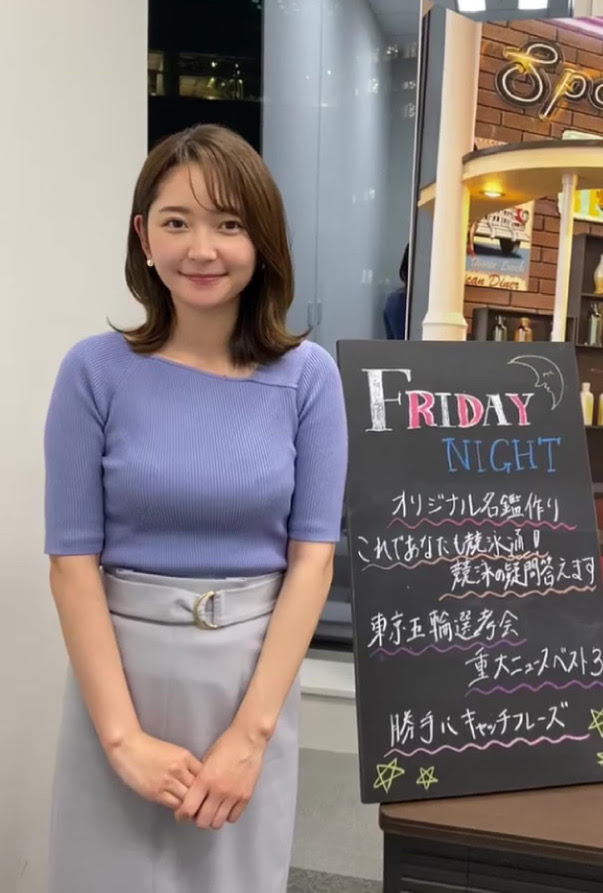 Spo
Diner
FRIDAY
NIGHT
オリジナル名鑑作り
これであなたも競泳通!
競泳の疑問答えます
東京五輪選考会
重大ニュースベスト3
勝手にキャッチフレーズ